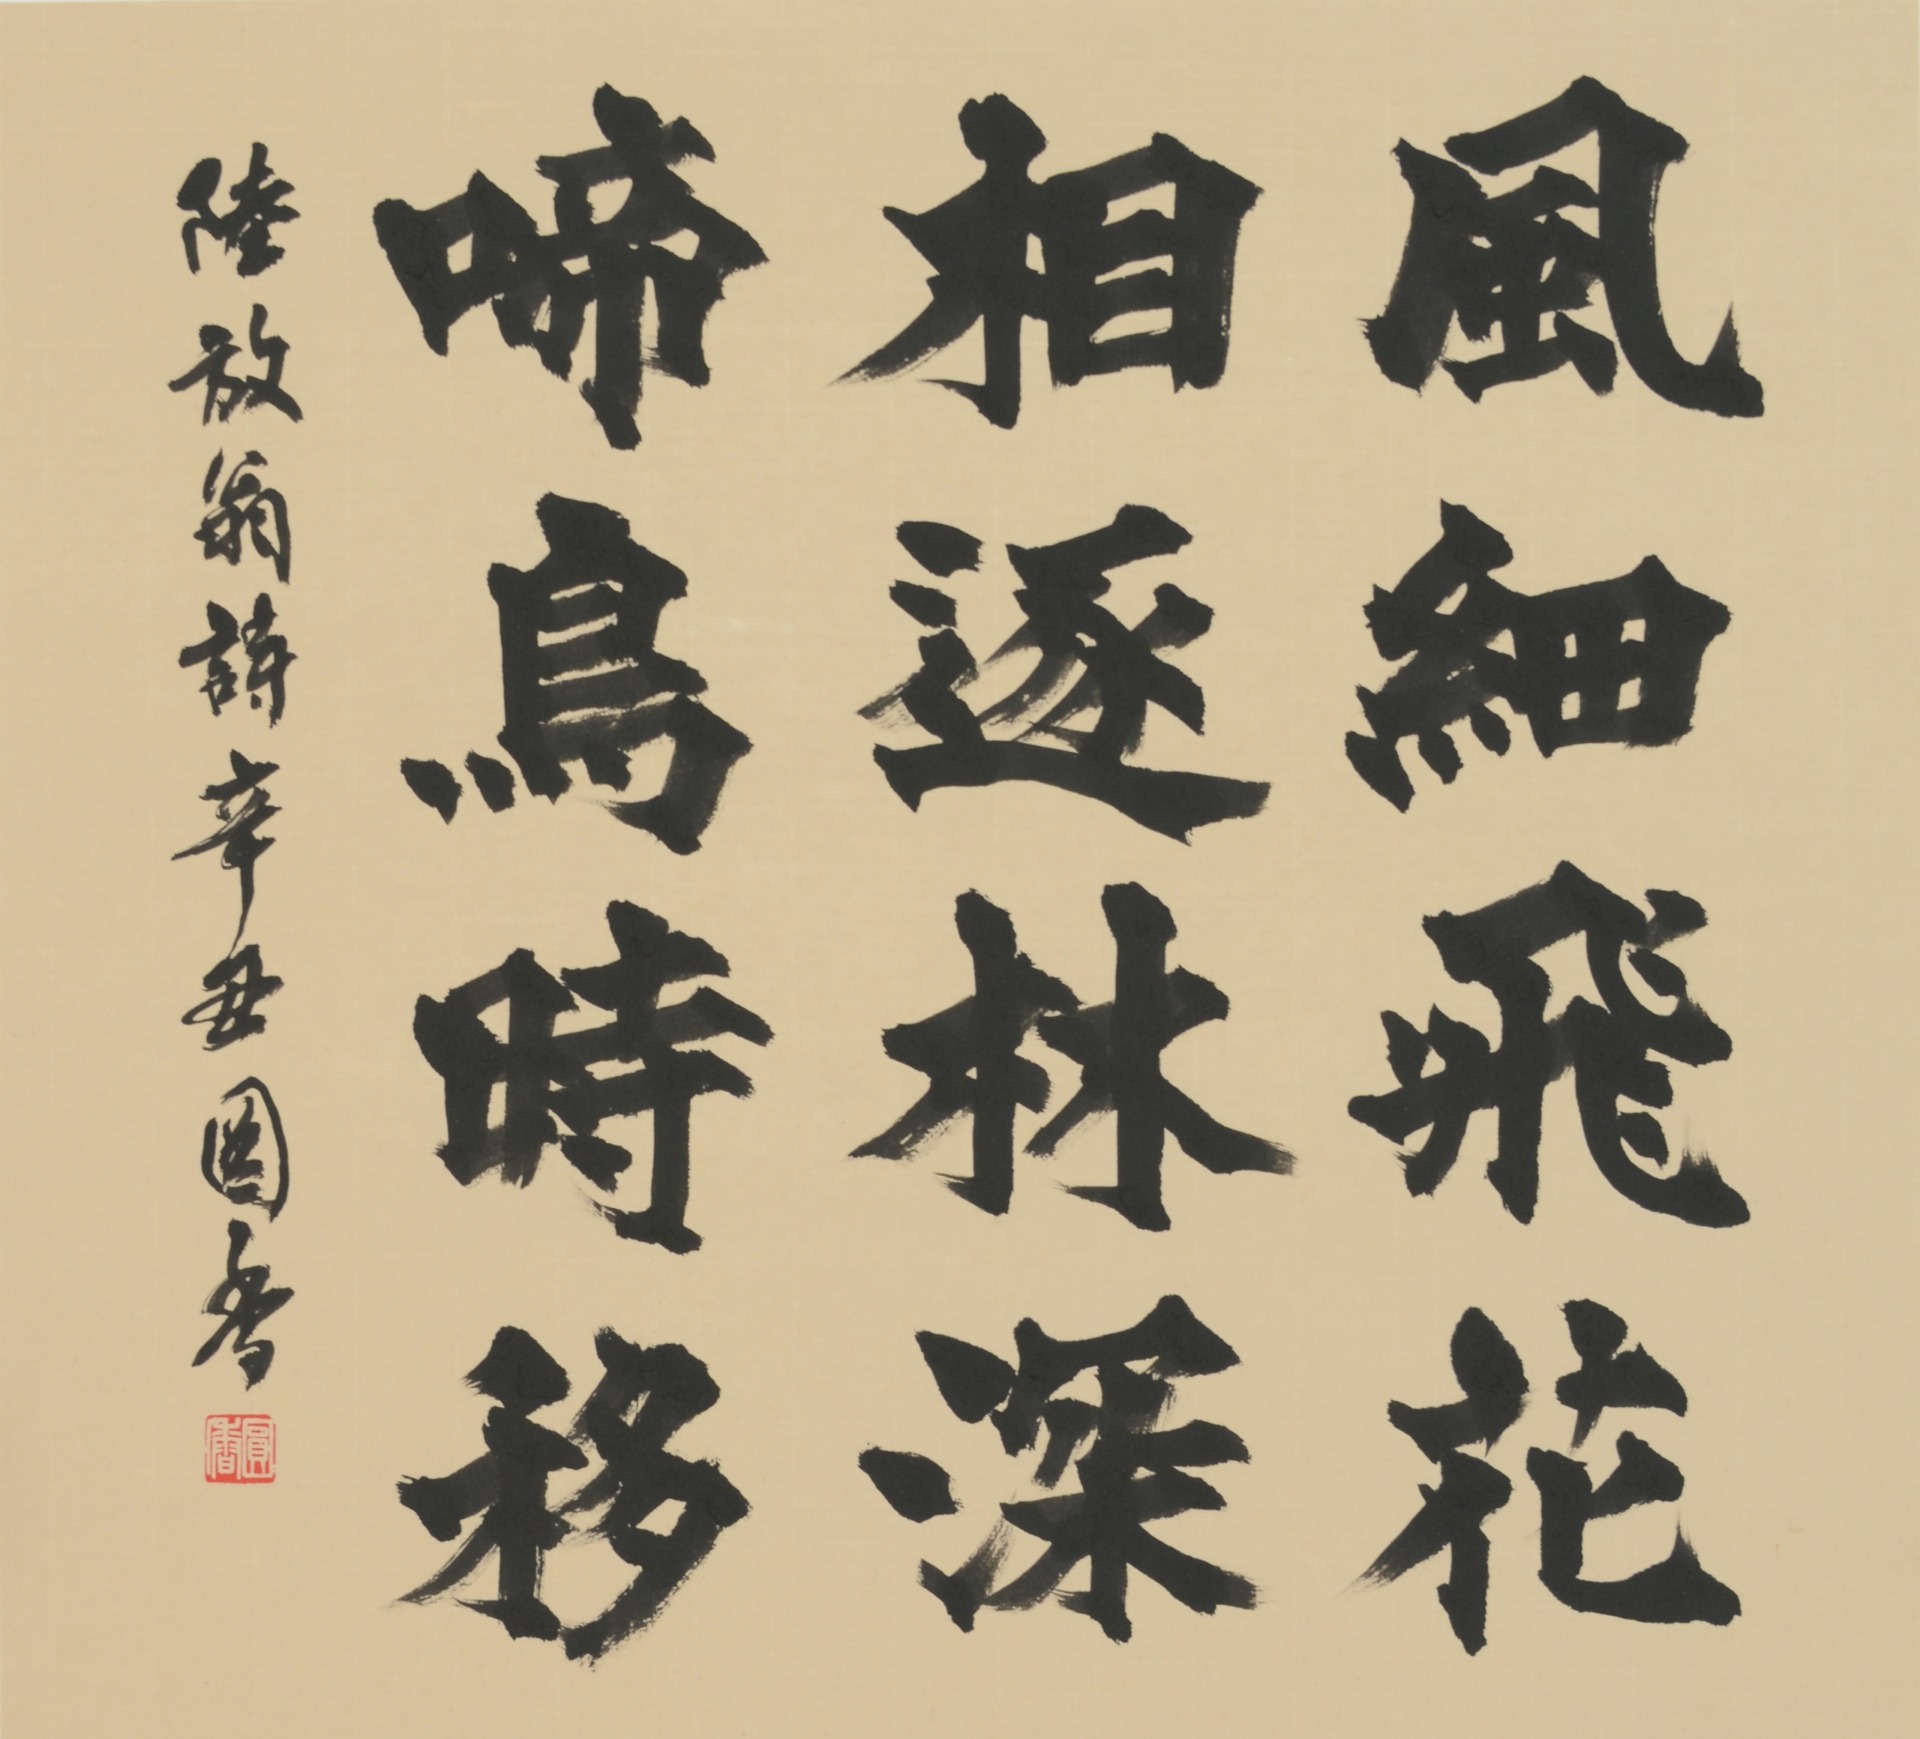 風細飛花
相逐林深
啼鳥時移
陸放翁詩辛丑圓香
圓香